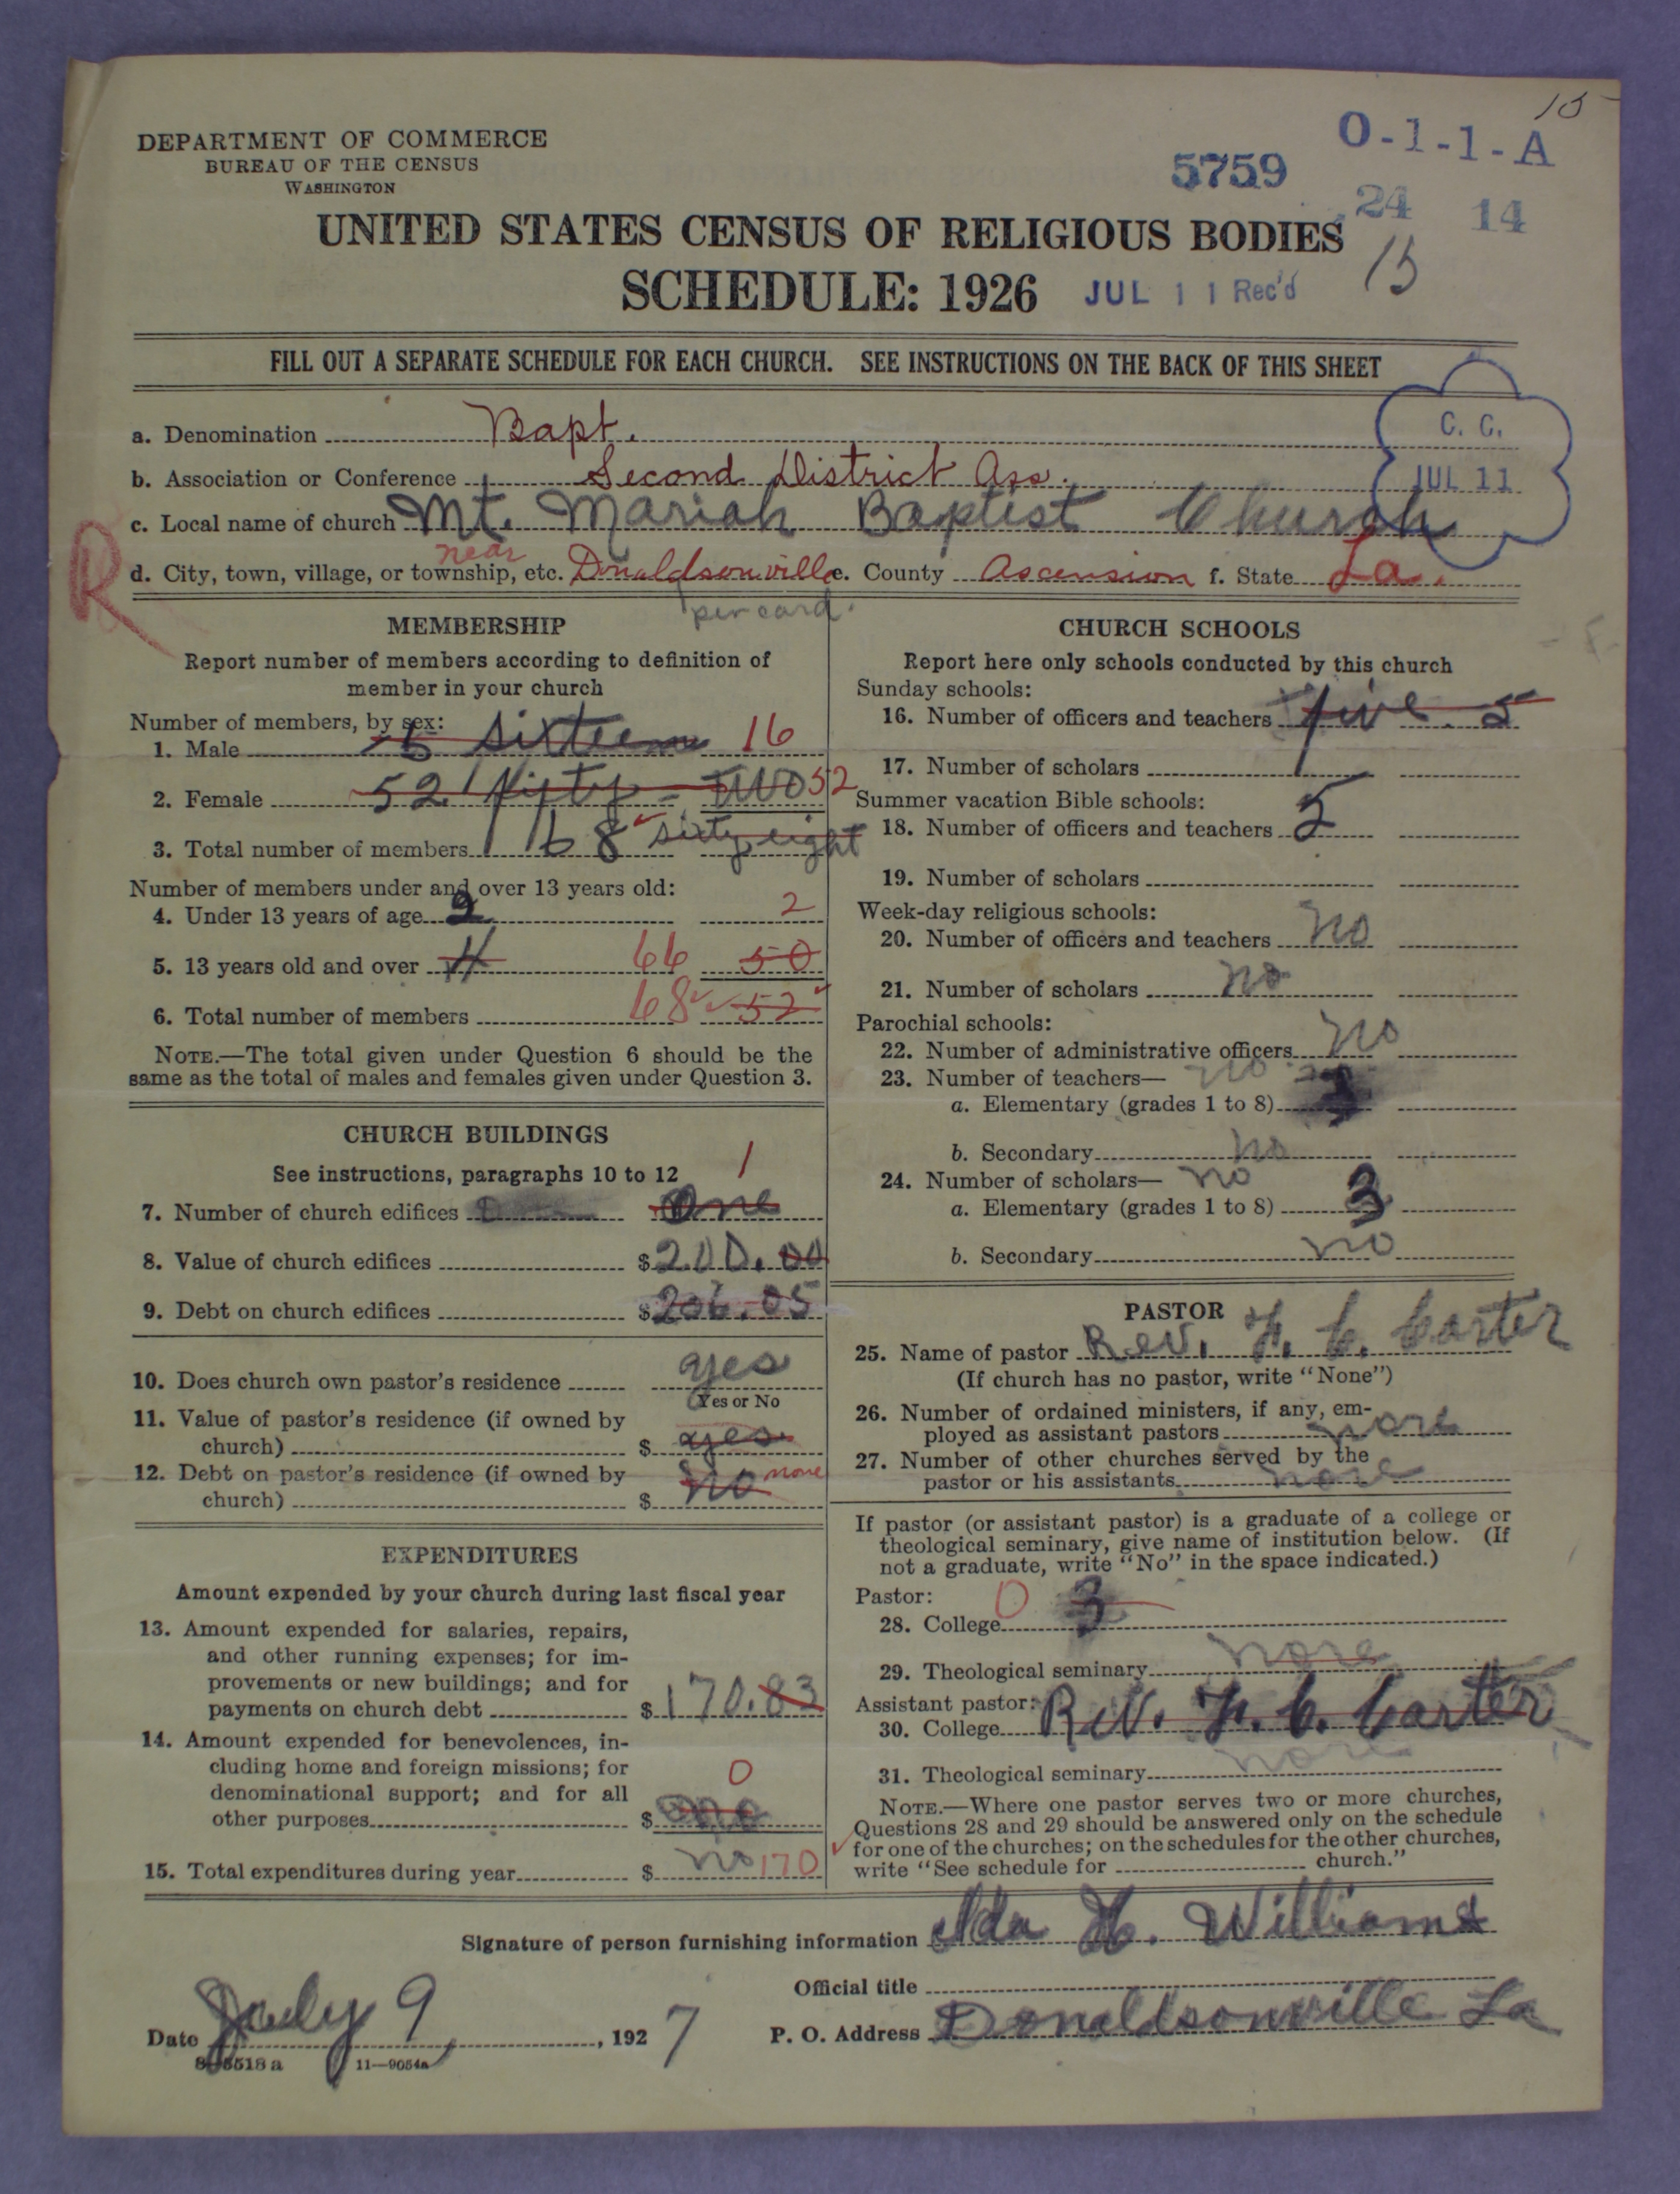 15
DEPARTMENT OF COMMERCE
BUREAU OF THE CENSUS
WASHINGTON
5759
O-1-1-A
24 14
15
UNITED STATES CENSUS OF RELIGIOUS BODIES
SCHEDULE: 1926
JUL 11 Rec'd
FILL OUT A SEPARATE SCHEDULE FOR EACH CHURCH. SEE INSTRUCTIONS ON THE BACK OF THIS SHEET
C. C.
JUL 11
a. Denomination Bapt.
b. Association or Conference Second District Ass.
c. Local name of church Mt. Mariah Baptist Church
R
d. City, town, village, or township, etc. near Donaldsonville e. County Ascension f. State La.
per card.
MEMBERSHIP
Report number of members according to definition of
member in your church
Number of members, by sex:
1. Male sixteen 16
2. Female 52 fifty-two 52
3. Total number of members 68 sixty eight
Number of members under and over 13 years old:
4. Under 13 years of age 2 2
5. 13 years old and over 66 50
6. Total number of members 68 52
NOTE.—The total given under Question 6 should be the
same as the total of males and females given under Question 3.
CHURCH BUILDINGS
See instructions, paragraphs 10 to 12 1
7. Number of church edifices One
8. Value of church edifices $200.00
9. Debt on church edifices $206.05
10. Does church own pastor's residence yes
Yes or No
11. Value of pastor's residence (if owned by
church) $ yes
12. Debt on pastor's residence (if owned by
church) $ no none
EXPENDITURES
Amount expended by your church during last fiscal year
13. Amount expended for salaries, repairs,
and other running expenses; for im-
provements or new buildings; and for
payments on church debt $170.83
14. Amount expended for benevolences, in-
cluding home and foreign missions; for
denominational support; and for all
other purposes $ 0
15. Total expenditures during year $ no 170
CHURCH SCHOOLS
Report here only schools conducted by this church
Sunday schools:
16. Number of officers and teachers five 5
17. Number of scholars
Summer vacation Bible schools:
18. Number of officers and teachers 5
19. Number of scholars
Week-day religious schools:
20. Number of officers and teachers no
21. Number of scholars no
Parochial schools:
22. Number of administrative officers no
23. Number of teachers— no
a. Elementary (grades 1 to 8) 3
b. Secondary no
24. Number of scholars— no
a. Elementary (grades 1 to 8) 3
b. Secondary no
PASTOR
25. Name of pastor Rev. H. C. Carter
(If church has no pastor, write "None")
26. Number of ordained ministers, if any, em-
ployed as assistant pastors none
27. Number of other churches served by the
pastor or his assistants none
If pastor (or assistant pastor) is a graduate of a college or
theological seminary, give name of institution below. (If
not a graduate, write "No" in the space indicated.)
Pastor:
28. College 0 3
29. Theological seminary none
Assistant pastor:
30. College Rev. H. C. Carter
31. Theological seminary none
NOTE.—Where one pastor serves two or more churches,
Questions 28 and 29 should be answered only on the schedule
for one of the churches; on the schedules for the other churches,
write "See schedule for church."
Signature of person furnishing information Ida H. Williams
Official title
Date July 9, 1927
P. O. Address Donaldsonville La
11—9054a